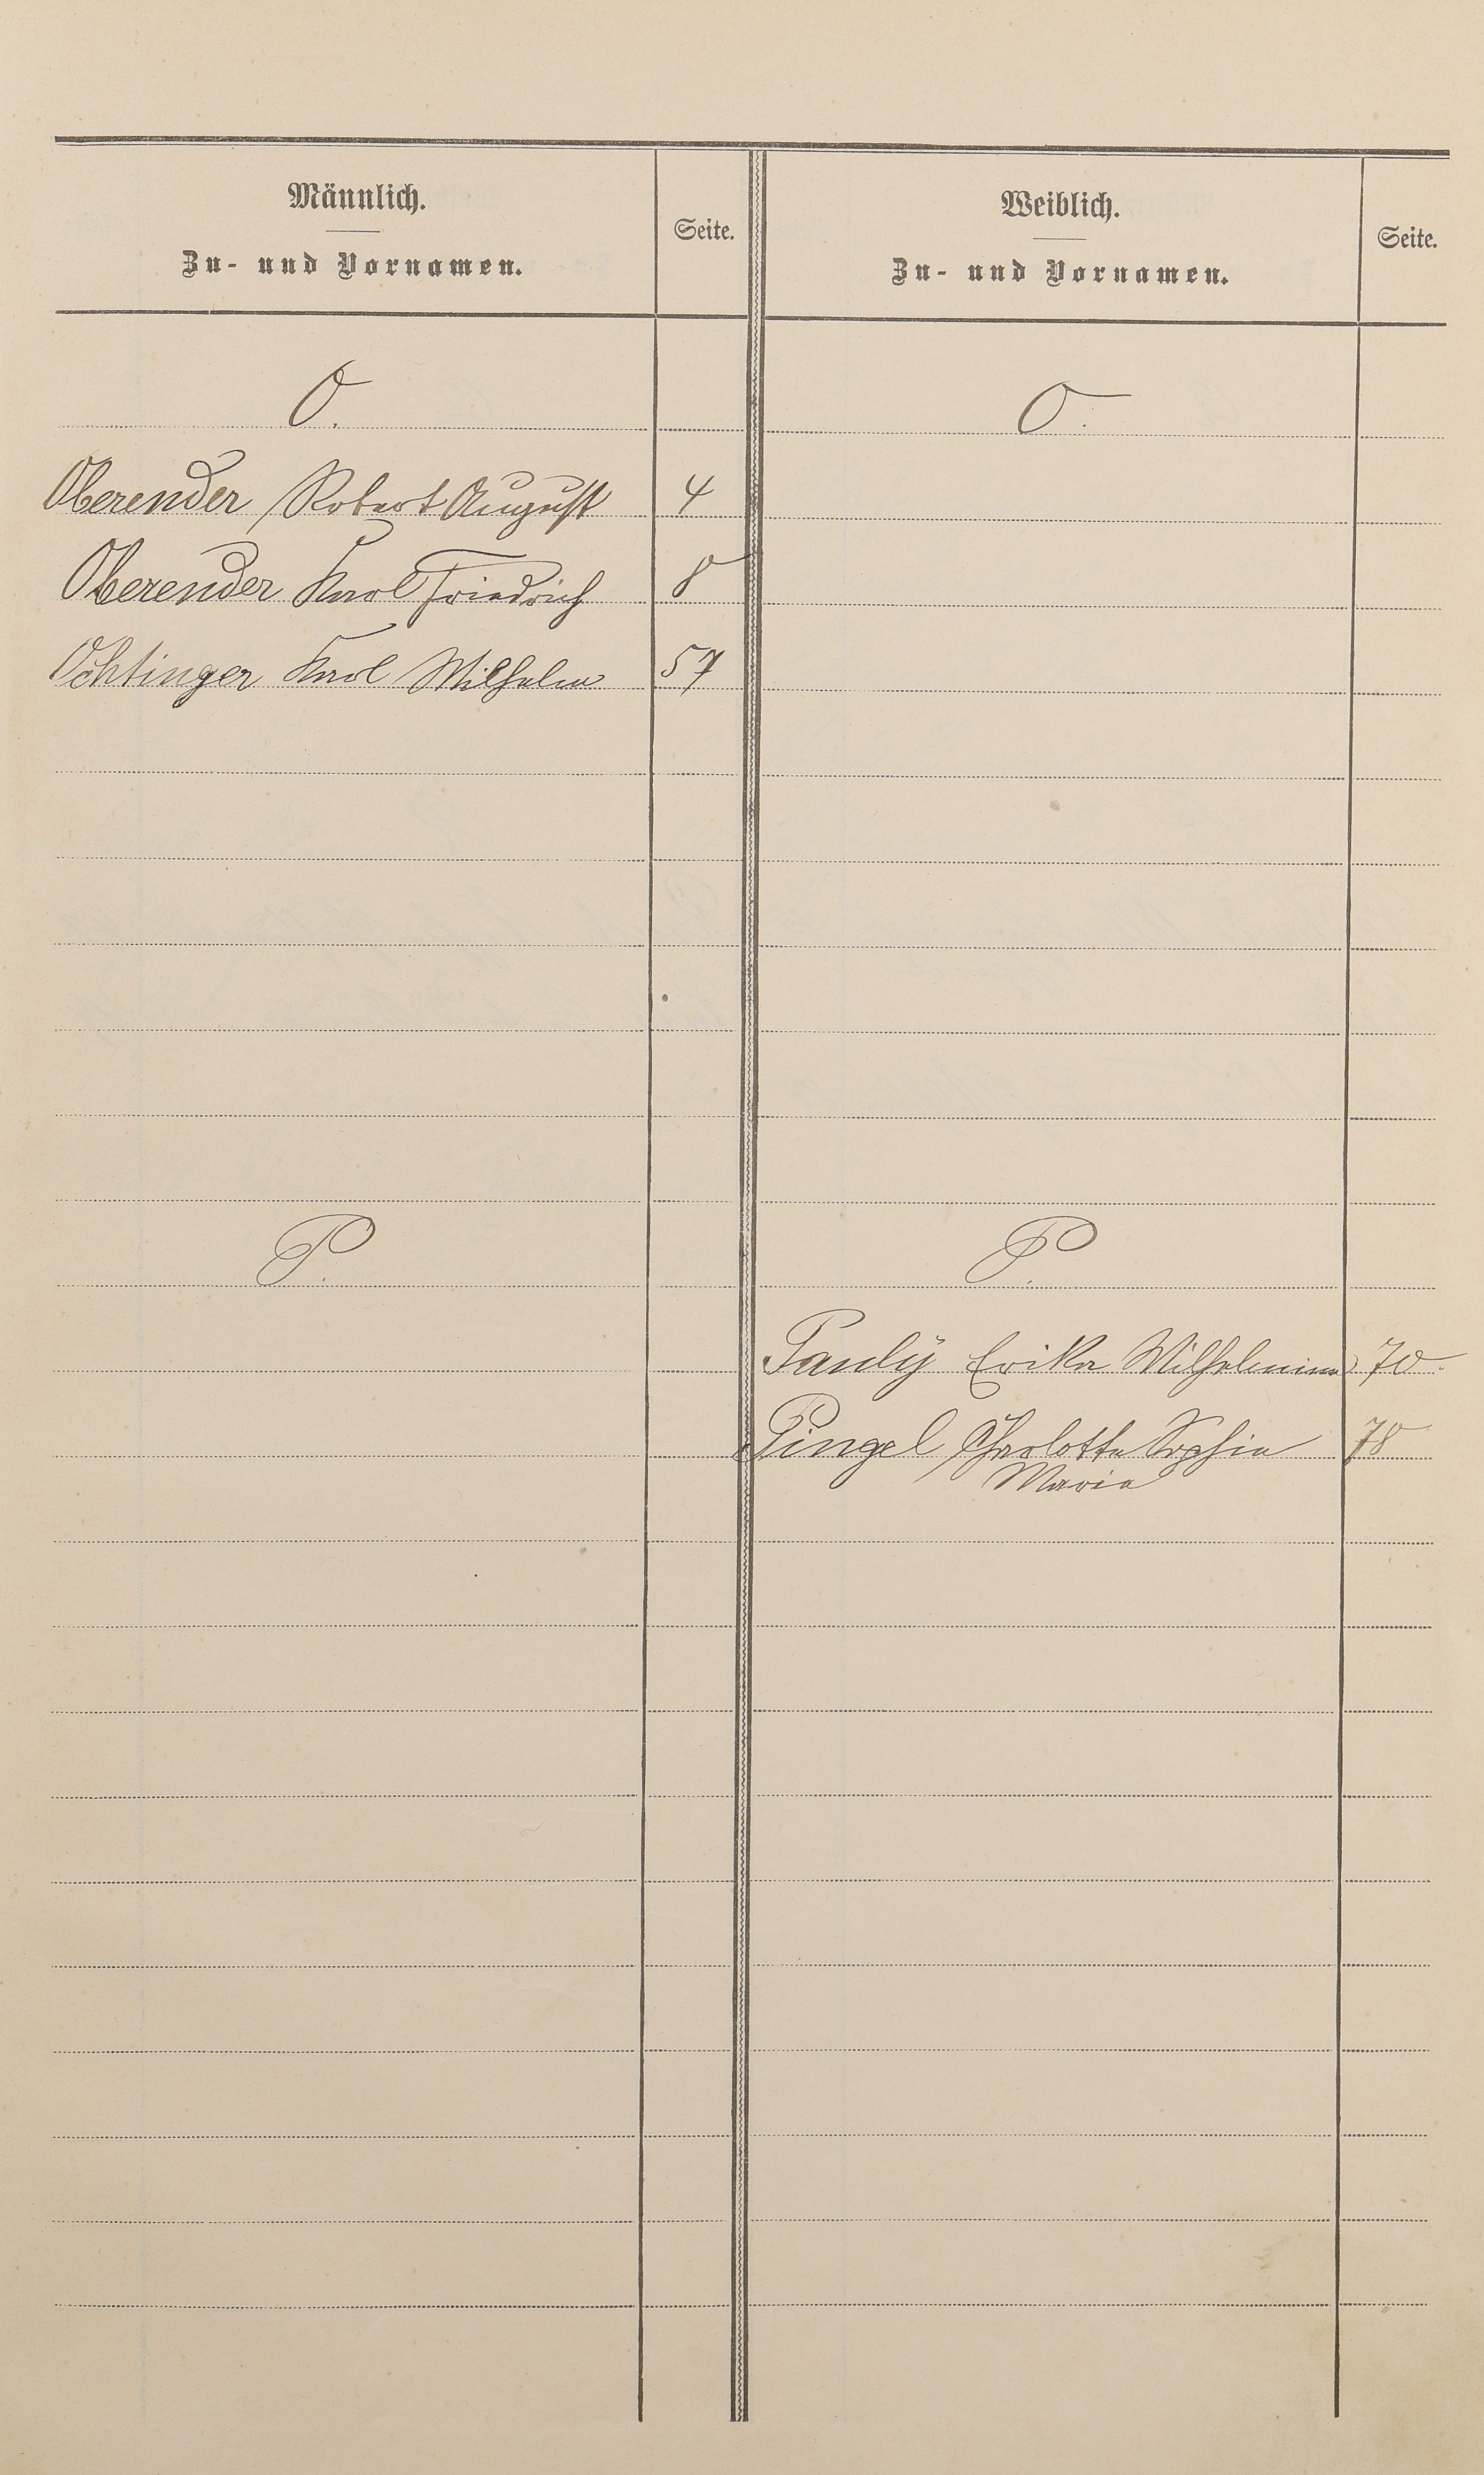 Männlich.
Zu- und Vornamen.
Seite.
Weiblich.
Zu- und Vornamen.
Seite.
O.
O.
Oberender Robert August 4
Oberender Karl Friedrich 8
Ochtinger Karl Wilhelm 57
P.
P.
Pauly Erika Wilhelmine 70
Pingel Charlotte Sophie 78
Marie